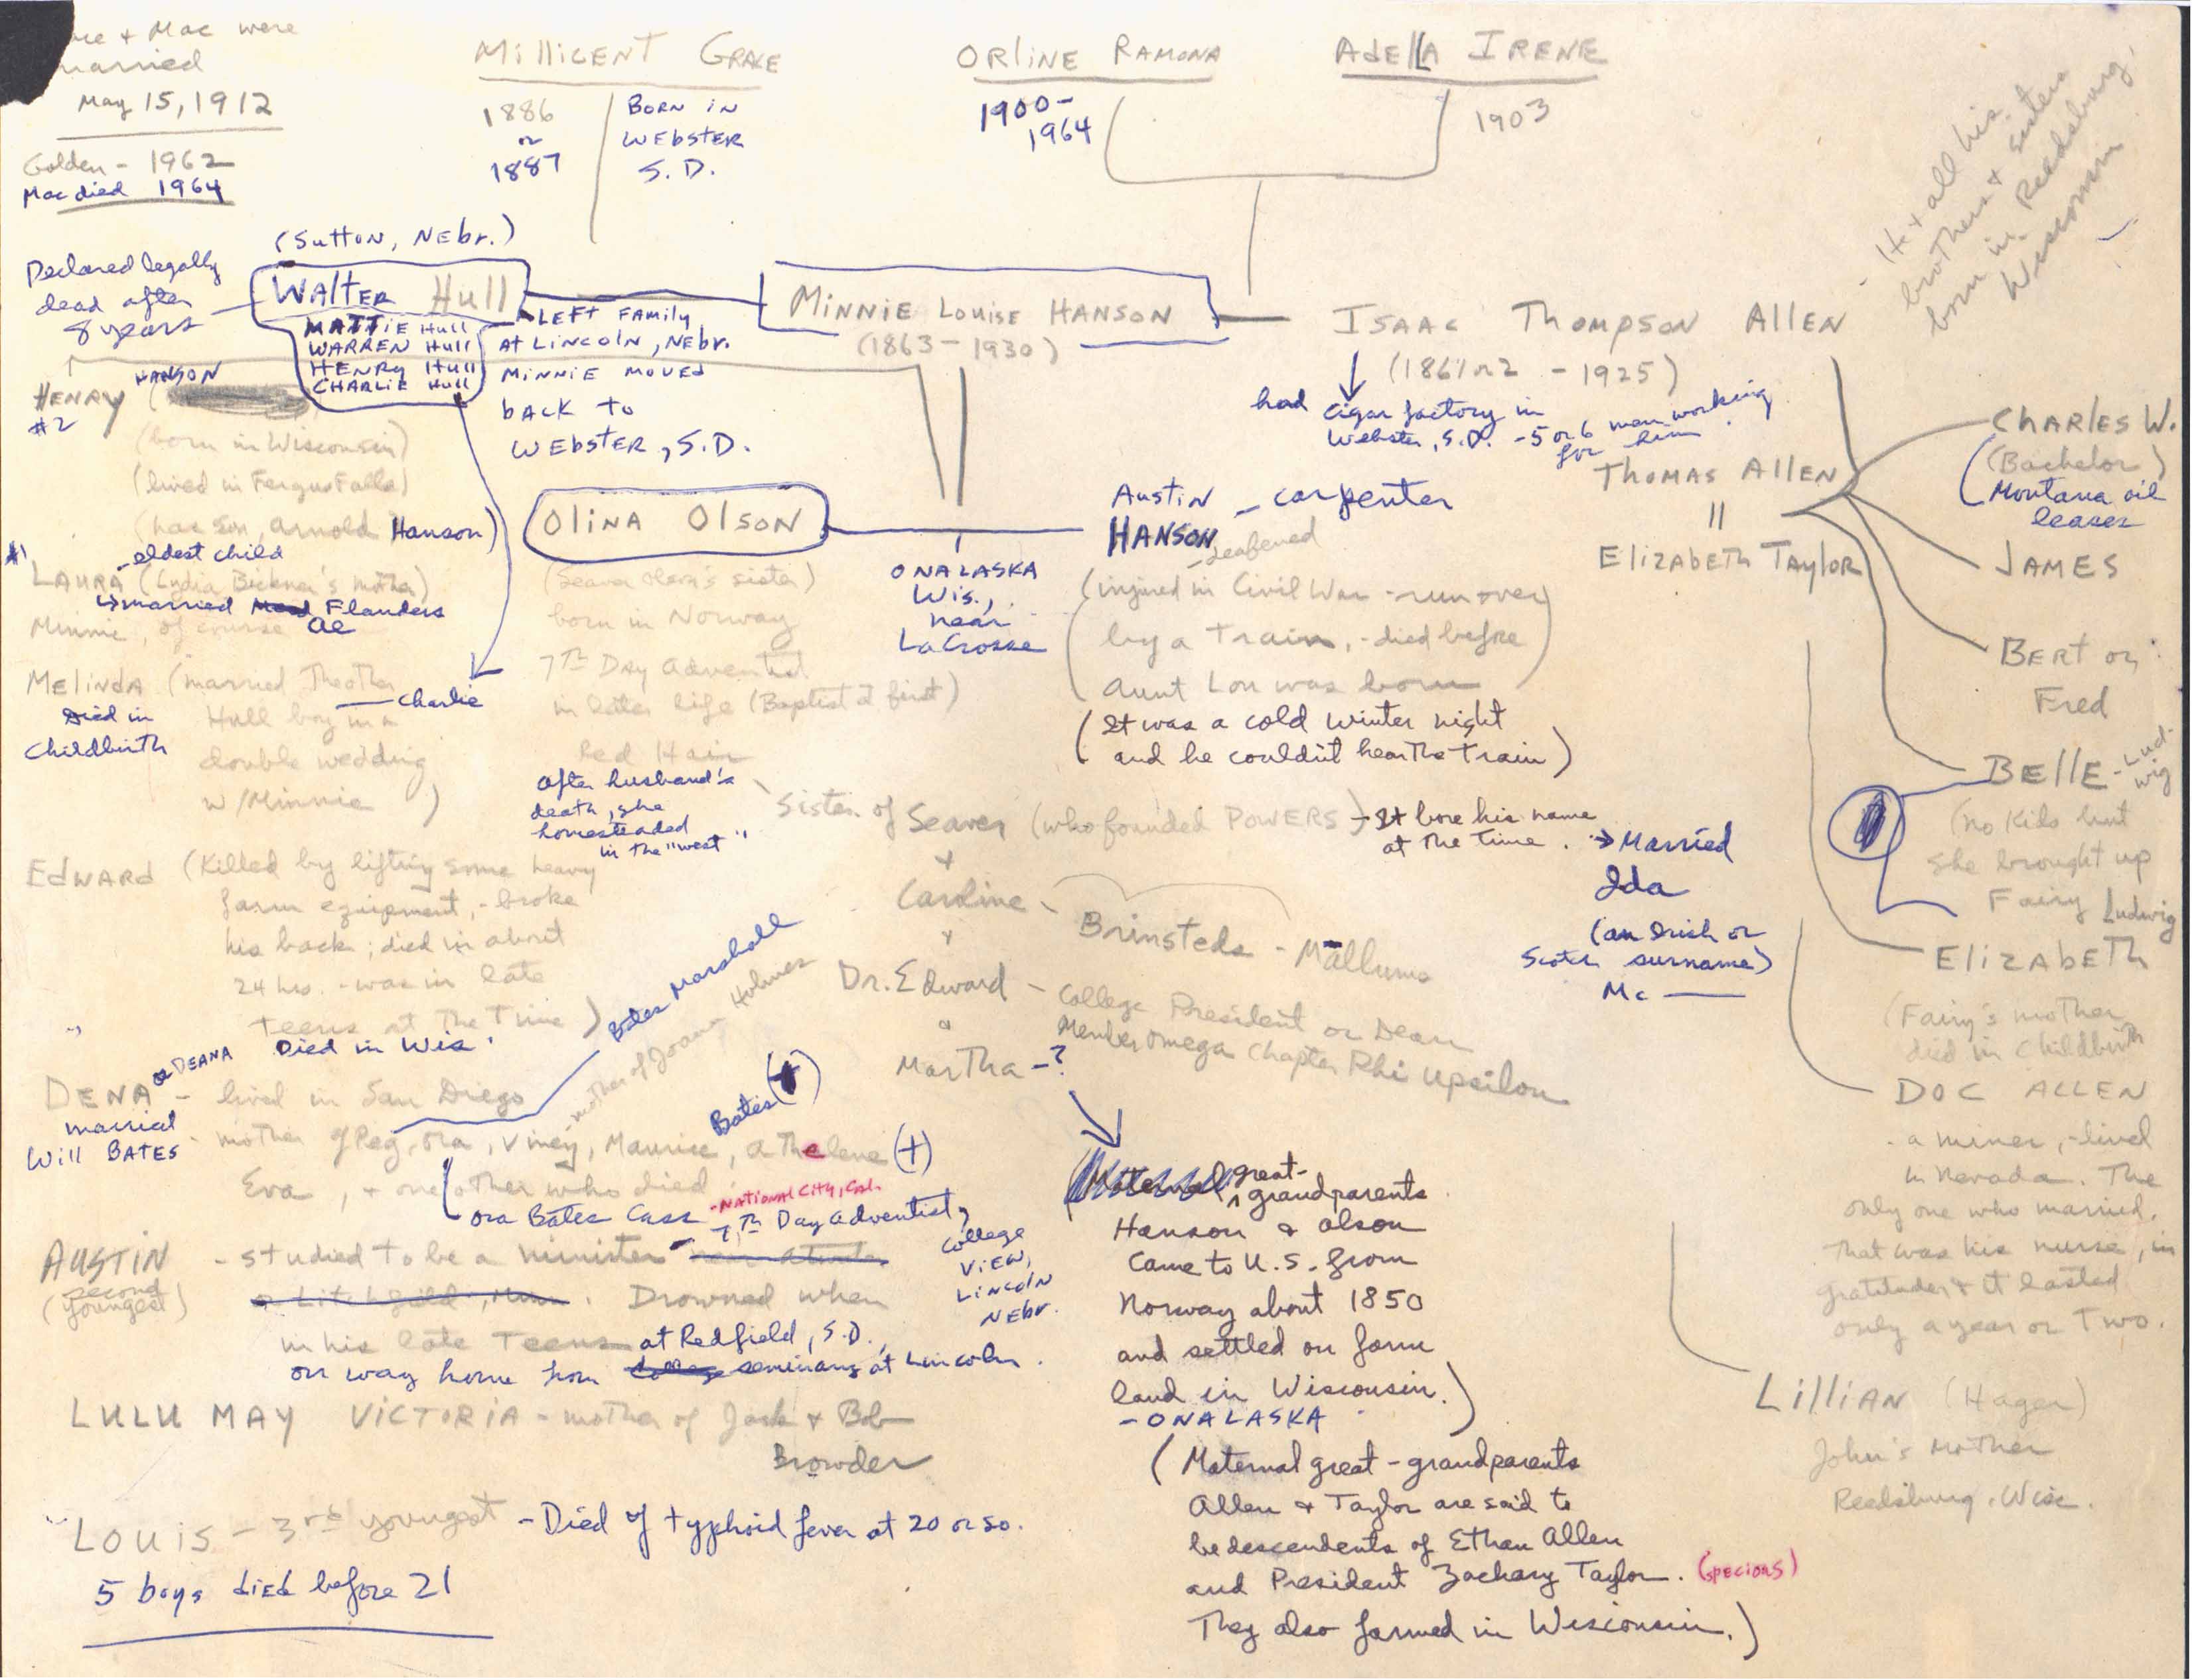 & Mac were
married
May 15, 1912
Golden - 1962
Mac died 1964
MILLICENT GRACE
1886
or
1887
BORN IN
WEBSTER
S.D.
ORLINE RAMONA
1900-
1964
ADELLA IRENE
1903
It + all his
brothers + sisters
born in Reedsburg,
Wisconsin
(Sutton, Nebr.)
Declared legally
dead after
8 years
WALTER Hull
MATTIE Hull
WARREN Hull
HENRY Hull
CHARLIE Hull
LEFT FAMILY
AT LINCOLN, NEbr.
MINNIE MOVED
BACK TO
WEBSTER, S.D.
MINNIE LOUISE HANSON
(1863 - 1930)
ISAAC THOMPSON ALLEN
(1861 or 2 - 1925)
had cigar factory in
Webster, S.D. - 5 or 6 men working
for him
HENRY (HANSON
#2
(born in Wisconsin)
(lived in Fergus Falls)
(has son, Arnold Hanson)
#1
- eldest child
LAURA (Lydia Bickner's mother)
married Flanders
Al
Minnie, of course
MELINDA (married The other
Hull boy in a
double wedding
w/Minnie)
- Charlie
Died in
Childbirth
EDWARD (Killed by lifting some heavy
farm equipment, - broke
his back; died in about
24 hrs. - was in late
teens at The Time)
Died in Wis.
DENA or DEANA - lived in San Diego
married
Will BATES
- mother of Peg, Ora, Viney, Maurice, Athelene (+)
Eva, + one other who died
Bates Marshall
mother of Joana Holmes
Bates (+)
Ora Bates Cass - NATIONAL CITY, Cal.
AUSTIN - studied to be a minister - 7Th Day Adventist,
(second
youngest)
College
VIEW,
LINCOLN
NEbr.
Litchfield, Minn. Drowned when
in his late Teens at Redfield, S.D.,
on way home from College seminary at Lincoln.
LULU MAY VICTORIA - mother of Jack & Bob
Browder
LOUIS - 3rd youngest - Died of typhoid fever at 20 or so.
5 boys died before 21
OLINA OLSON
(Seaver Olson's sister)
born in Norway
7Th Day Adventist
in later life (Baptist at first)
Red Hair
after husband's
death, she
homesteaded
in the "west"
ONALASKA
Wis.,
near
LaCrosse
Austin - carpenter
HANSON
- deafened
(injured in Civil War - run over
by a Train, - died before
Aunt Lou was born
(It was a cold winter night
and he couldn't hear The train)
Sister of Seaver (who founded POWERS) - It bore his name
at the time.
→ Married
Ida
(an Irish or
Scotch surname)
Mc ——
+
Caroline - Brinsteds - Mallums
+
Dr. Edward - College President or Dean
Member Omega Chapter Phi Upsilon
+
Martha - ?
Maternal great-
grandparents
Hanson & Olson
Came to U.S. from
Norway about 1850
and settled on farm
land in Wisconsin.)
- ONALASKA
(Maternal great-grandparents
Allen & Taylor are said to
be descendents of Ethan Allen
and President Zachary Taylor. (specious)
They also farmed in Wisconsin.)
THOMAS ALLEN
||
ELIZABETH TAYLOR
CHARLES W.
(Bachelor)
(Montana oil
leases
JAMES
BERT or
Fred
BELLE - Lud-
wig
(no kids but
she brought up
Fairy Ludwig
ELIZABETH
(Fairy's mother
died in Childbirth
DOC ALLEN
- a miner, - lived
in Nevada. The
only one who married.
That was his nurse, in
gratitude & it lasted
only a year or Two.
LILLIAN (Hager)
John's Mother
Reedsburg, Wisc.